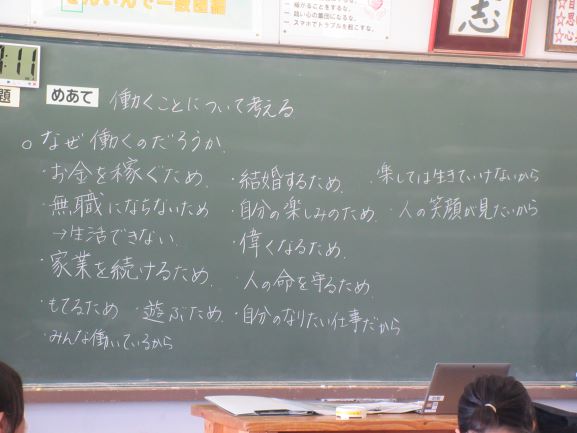 ぜんいんで一致団結
一、悪いことをするな。
一、強い心の集団になるな。
一、スマホでトラブルを起こすな。
志
3:11
題
めあて 働くことについて考える
○なぜ働くのだろうか。
・お金を稼ぐため。
・無職にならないため
→生活できない。
・家業を続けるため。
・もてるため ・遊ぶため。
・みんな働いているから
・結婚するため。
・自分の楽しみのため。
・偉くなるため。
・人の命を守るため。
・自分のなりたい仕事だから
・楽しては生きていけないから
・人の笑顔が見たいから